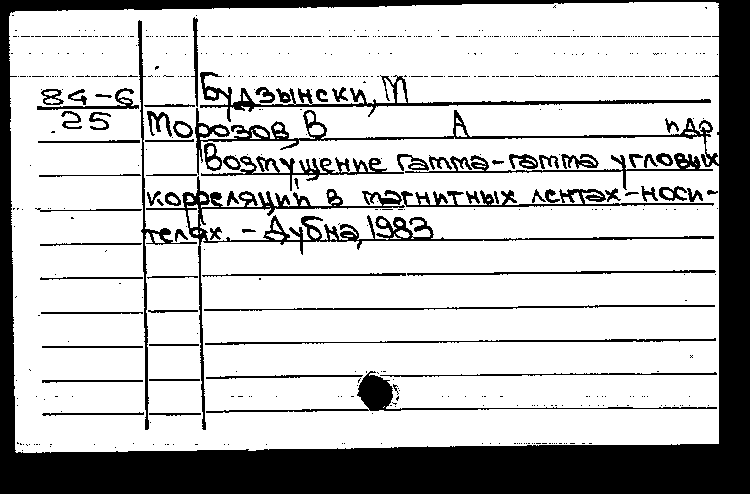 84-6 Будзынски, М
25 Морозов, В А и др.
Возмущение гамма-гамма угловых
корреляций в магнитных лентах-носи-
телях. - Дубна, 1983.